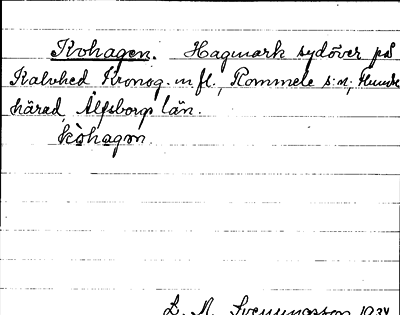 Kohagen. Hagmark sydöver på
Kalvhed Kronog. m.fl., Rommele s:n, Flundre
härad, Älfsborgs län.
kòhagen.
D. A. Svenningsson 1934